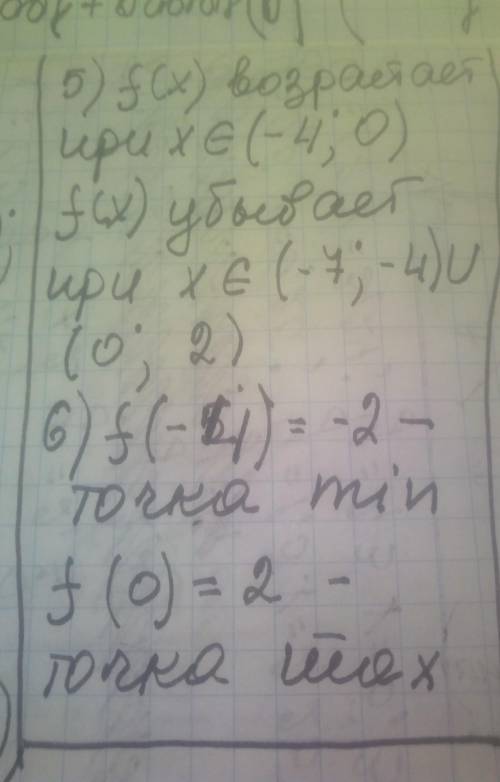 5) f(x) возрастает
при x ∈ (-4; 0)
f(x) убывает
при x ∈ (-7; -4) U
(0; 2)
6) f(-4) = -2 –
точка min
f(0) = 2 –
точка max